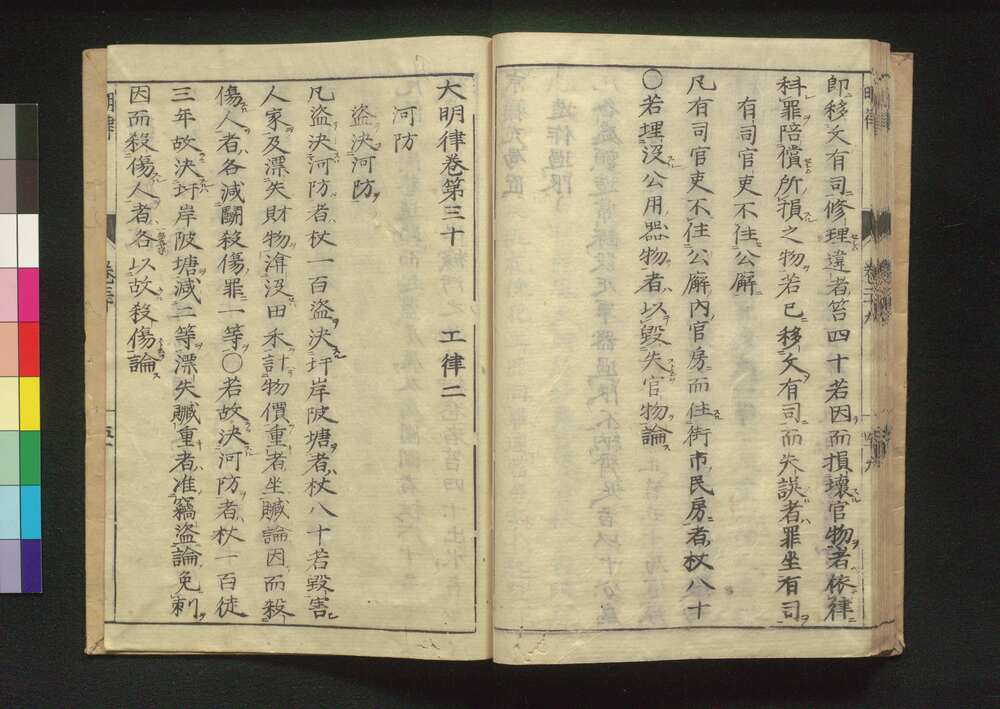 即移文有司修理違者笞四十若因而損壞官物者依律
科罪陪償所損之物若已移文有司而失誤者罪坐有司
有司官吏不住公廨
凡有司官吏不住公廨内官房而住街市民房者杖八十
〇若埋没公用器物者以毀失官物論
大明律卷第三十 工律二
河防
盗決河防
凡盗決河防者杖一百盗決圩岸陂塘者杖八十若毀害
人家及漂失財物渰没田禾計物價重者坐贓論因而殺
傷人者各減鬪殺傷罪一等〇若故決河防者杖一百徒
三年故決圩岸陂塘減二等漂失贓重者准竊盗論免刺
因而殺傷人者各以故殺傷論